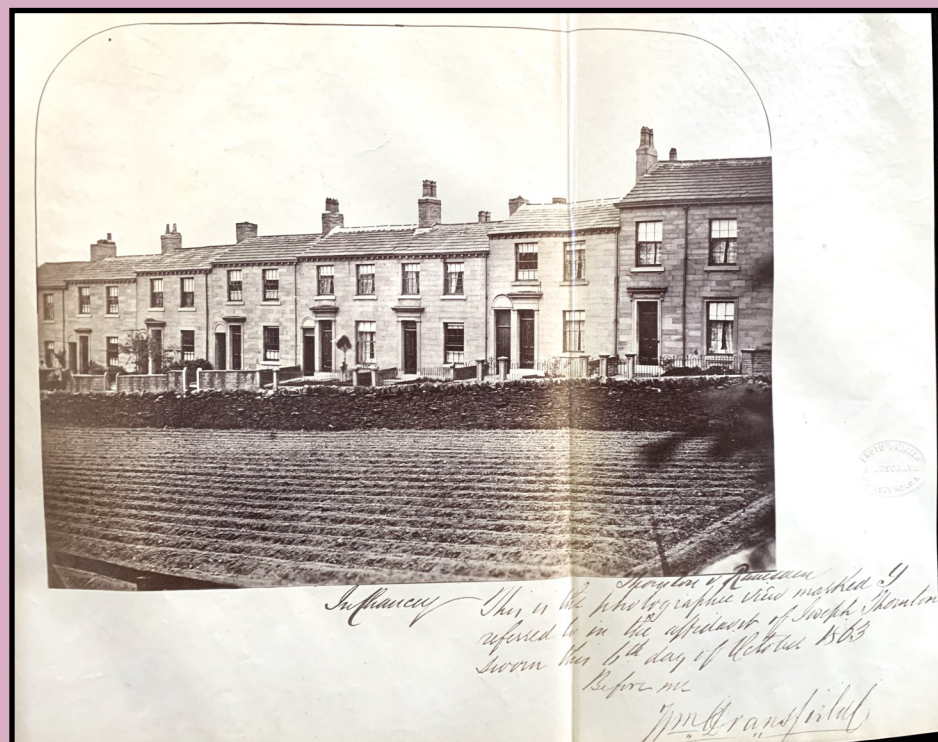 Thornton v Ramsden
In Chancery This is the photographic view marked Y
referred to in the affidavit of Joseph Thornton
sworn this 6th day of October 1863
Before me